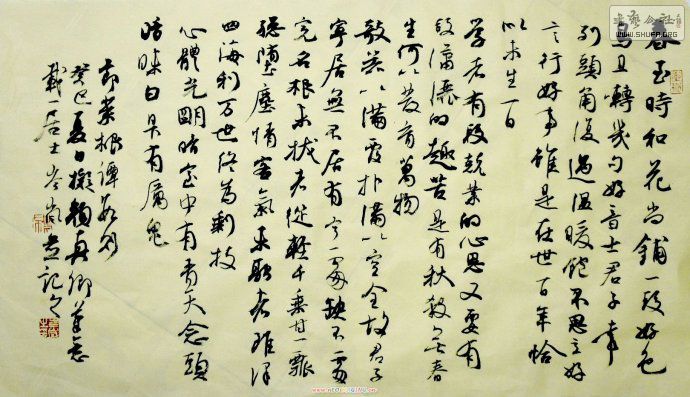 春至時和花尚鋪一段好色
鳥且轉幾句好音士君子幸
列頭角復遇溫暖飽不思立好
言行好事雖是在世百年恰
似未生一日
學者有段兢業的心思又要有
段瀟灑的趣苦是有秋殺無春
生何以發育萬物
欹器以滿覆撲滿以空全故君子
寧居無不居有寧處缺不處
完名根未拔者縱輕千乘甘一瓢
總墮塵情客氣未融者雖澤
四海利萬世終為剩技
心體光明暗室中有青天念頭
暗昧白日有厲鬼
節菜根譚數則
癸巳夏日擬顏真卿筆意
一居士書記之
书艺公社
WWW.SHUFA.ORG